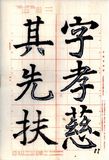 字孝慈
其先扶